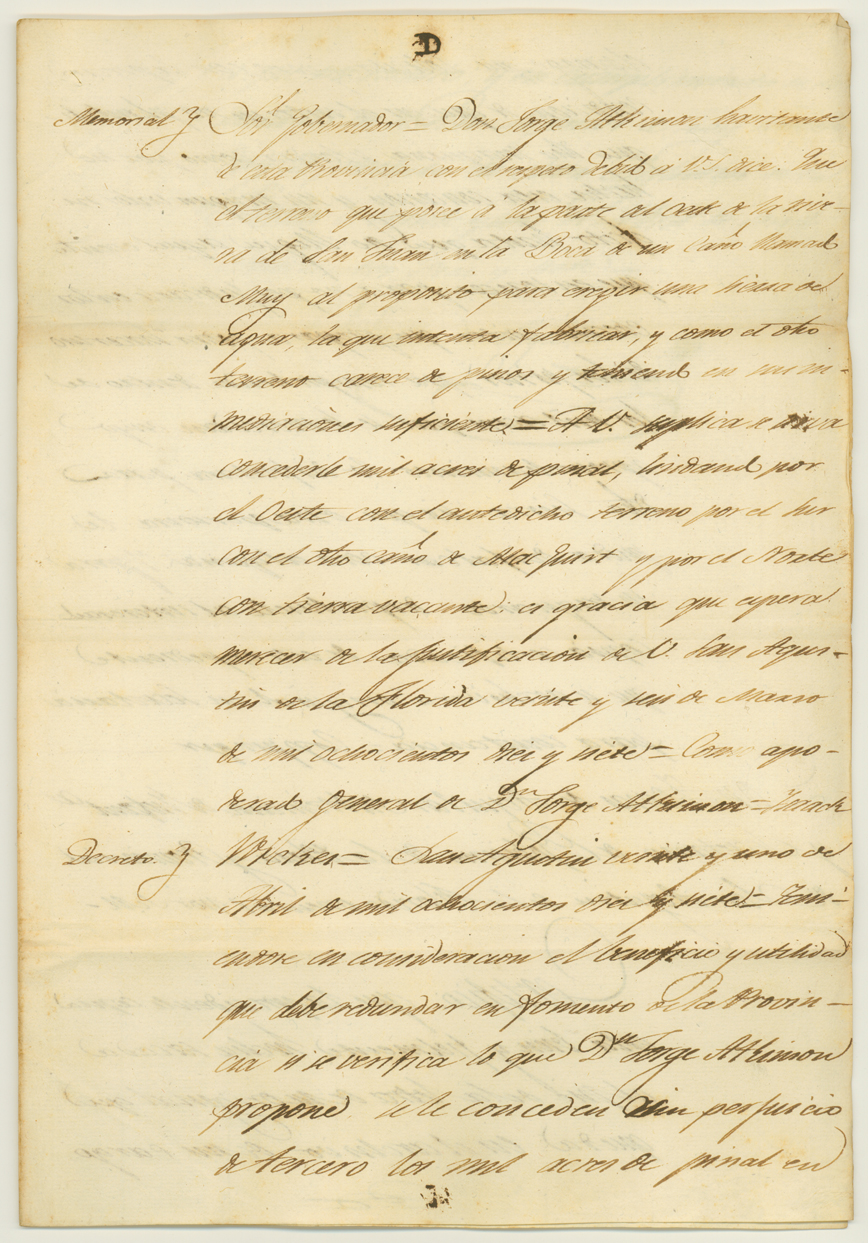 D
Memorial } Sor. Gobernador = Don Jorge Atkinson havitante
de esta Provincia con el respeto debido á V.S. dice: Que
el terreno que posee a la parte al Oeste de la rive-
ra de San Juan en la Boca de un Caño llamado
Muy al proposito para erigir una Sierra de
agua, la que intenta fabricar, y como el dho
terreno carece de pinos y teniend en sus in-
mediaciones suficiente = A V. suplica se sirva
concederle mil acres de pinal, lindand por
el Oeste con el antedicho terreno por el Sur
con el dho caño de y por el Norte
con tierra vacante es gracia que espera
merecer de la Justificacion de V. San Agus-
tin de la Florida veinte y seis de Marzo
de mil ochocientos diez y siete = Como apo-
derado general de Dn. Jorge Atkinson =
Decreto } = San Agustin veinte y uno de
Abril de mil ochocientos diez y siete = Teni-
endose en consideracion el beneficio y utilidad
que debe redundar en fomento de la Provin-
cia si se verifica lo que Dn. Jorge Atkinson
propone se le conceden sin perjuicio
de tercero los mil acres de pinal en